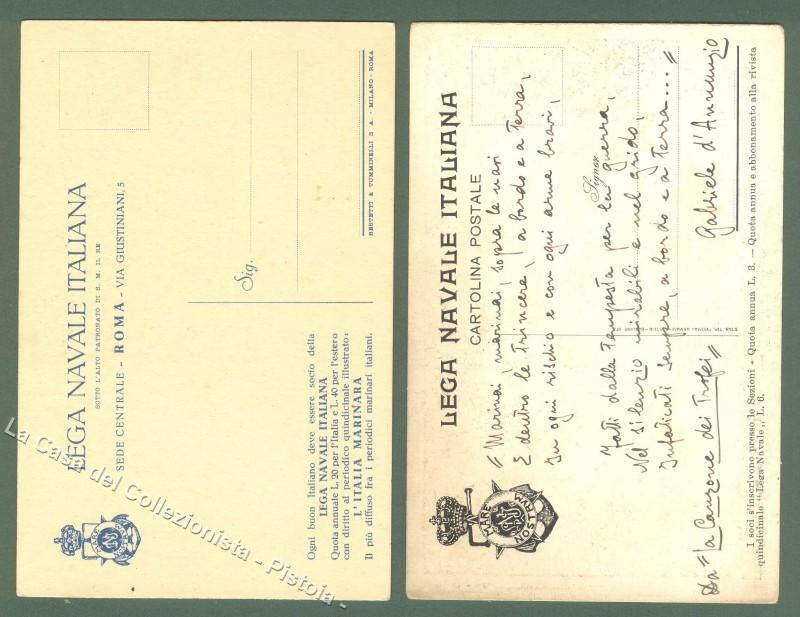 LEGA NAVALE ITALIANA
SOTTO L'ALTO PATRONATO DI S. M. IL RE
SEDE CENTRALE - ROMA - VIA GIUSTINIANI, 5
Sig.
BESTETTI & TUMMINELLI S A. - MILANO - ROMA
Ogni buon italiano deve essere socio della
LEGA NAVALE ITALIANA
Quota annuale L. 20 per l'Italia e L. 40 per l'estero
con diritto al periodico quindicinale illustrato:
L'ITALIA MARINARA
Il più diffuso fra i periodici marinari italiani.
MARE NOSTRUM
La Casa del Collezionista - Pistoia -
LEGA NAVALE ITALIANA
CARTOLINA POSTALE
MARE NOSTRUM
Signor
"Marinai, marinai, sopra le navi
E dentro le Trincere, a bordo e a Terra,
In ogni rischio e con ogni arme bravi,
fatti dalla Tempesta per la guerra,
Nel silenzio mirabili e nel grido,
Infaticati sempre, a bordo e a Terra..."
Gabriele d'Annunzio
Da "la Canzone dei Trofei"
I soci s'inscrivono presso le Sezioni - Quota annua L. 3. - Quota annua e abbonamento alla rivista
quindicinale "Lega Navale,, L. 6.